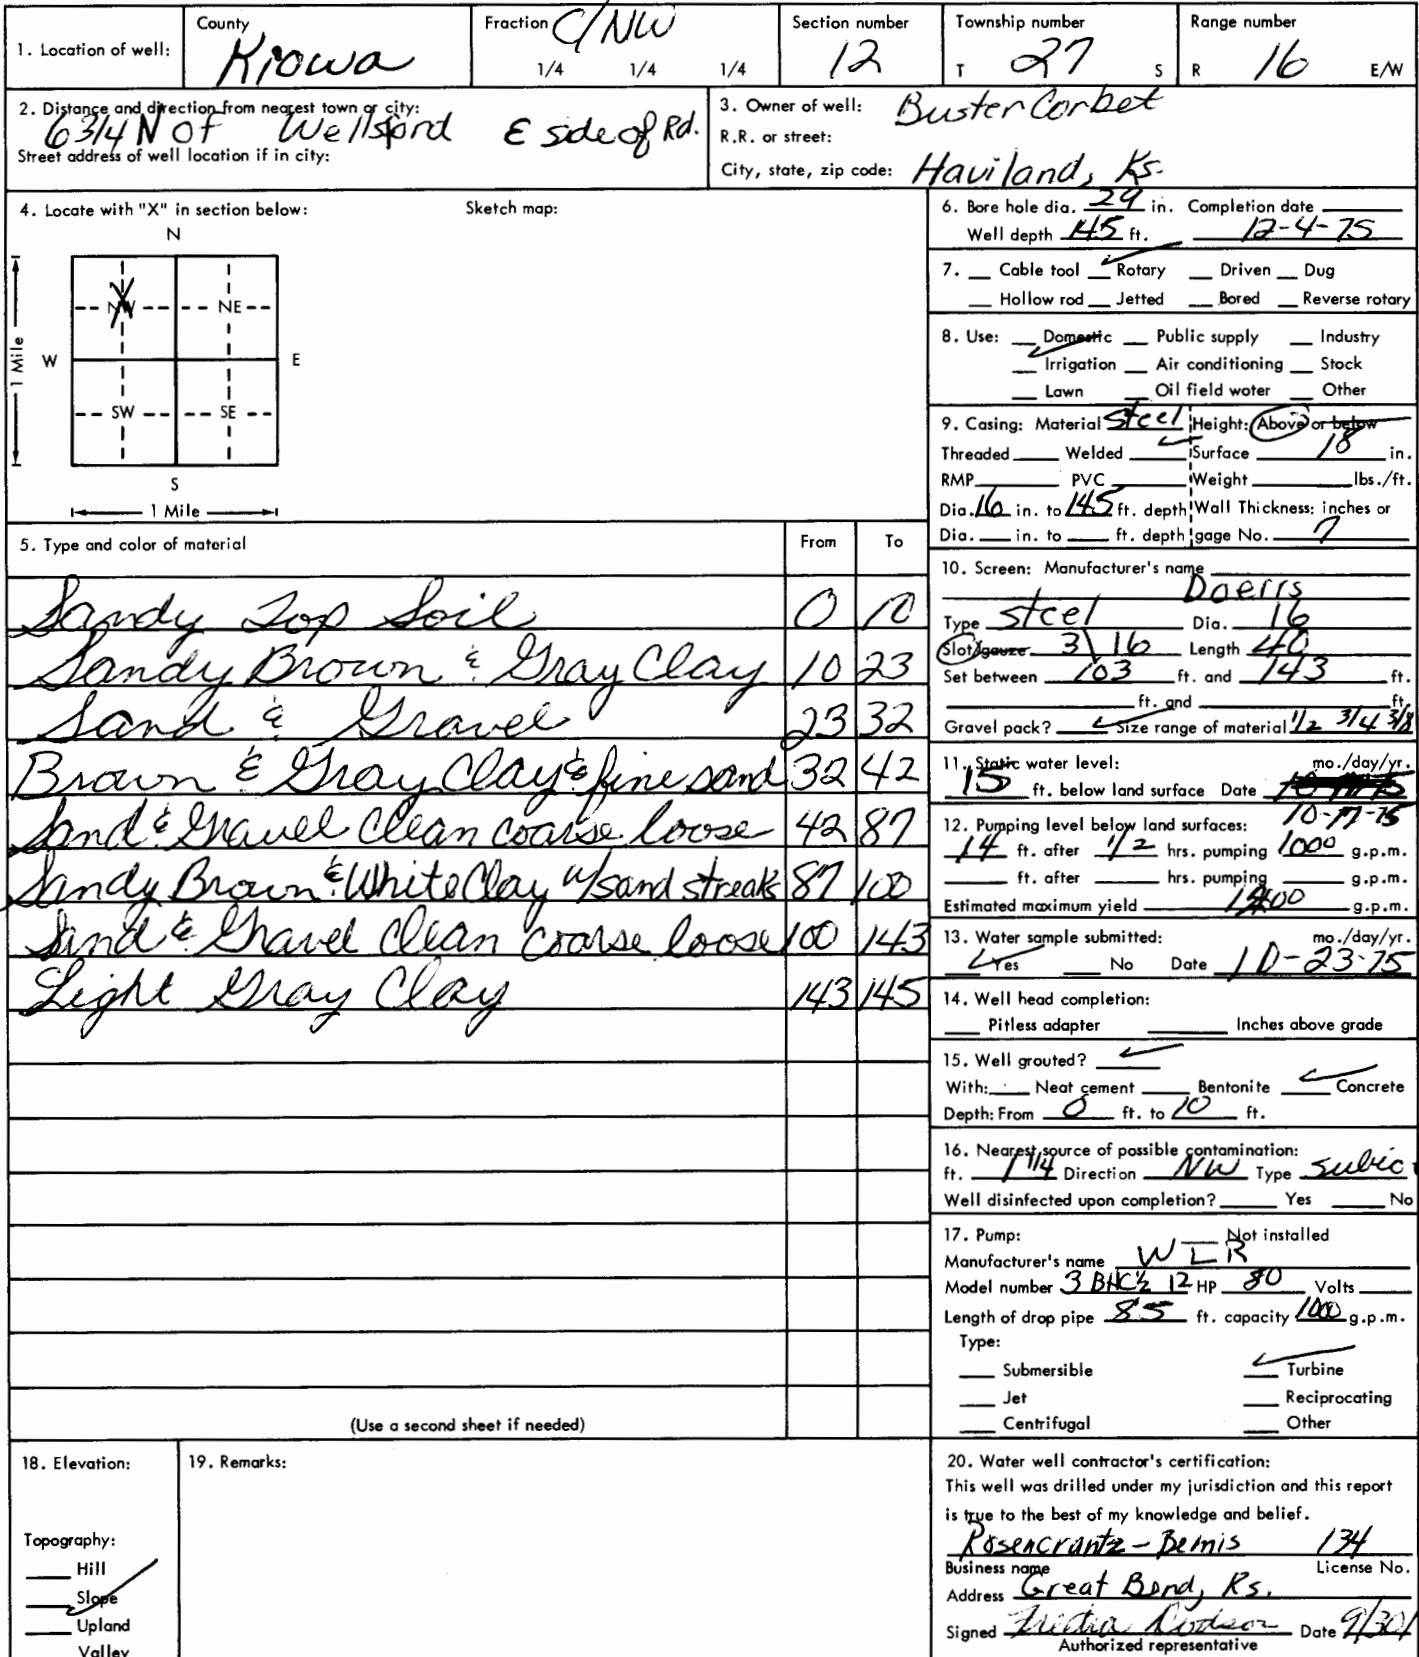 1. Location of well: County Kiowa Fraction C/NW 1/4 1/4 1/4 Section number 12 Township number T 27 S Range number R 16 E/W
2. Distance and direction from nearest town or city: 6 3/4 N of Wellsford E side of Rd.
Street address of well location if in city:
3. Owner of well: Buster Corbet
R.R. or street:
City, state, zip code: Haviland, Ks.
4. Locate with "X" in section below: Sketch map:
N
NW NE
W E
1 Mile
SW SE
S
1 Mile
5. Type and color of material From To
Sandy Top Soil 0 10
Sandy Brown & Gray Clay 10 23
Sand & Gravel 23 32
Brown & Gray Clay & fine sand 32 42
Sand & Gravel Clean coarse loose 42 87
Sandy Brown & White Clay w/sand streaks 87 100
Sand & Gravel Clean coarse loose 100 143
Light Gray Clay 143 145
(Use a second sheet if needed)
6. Bore hole dia. 29 in. Completion date
Well depth 145 ft. 12-4-75
7. Cable tool Rotary Driven Dug
Hollow rod Jetted Bored Reverse rotary
8. Use: Domestic Public supply Industry
Irrigation Air conditioning Stock
Lawn Oil field water Other
9. Casing: Material Steel Height: Above or below
Threaded Welded Surface 18 in.
RMP PVC Weight lbs./ft.
Dia. 16 in. to 145 ft. depth Wall Thickness: inches or
Dia. in. to ft. depth gage No. 7
10. Screen: Manufacturer's name
Doerrs
Type steel Dia. 16
Slot/gauze 3\16 Length 40
Set between 103 ft. and 143 ft.
ft. and ft.
Gravel pack? Size range of material 1/2 3/4 3/8
11. Static water level: mo./day/yr.
15 ft. below land surface Date
10-17-75
12. Pumping level below land surfaces:
14 ft. after 1/2 hrs. pumping 1000 g.p.m.
ft. after hrs. pumping g.p.m.
Estimated maximum yield g.p.m.
13. Water sample submitted: mo./day/yr.
Yes No Date 10-23-75
14. Well head completion:
Pitless adapter Inches above grade
15. Well grouted?
With: Neat cement Bentonite Concrete
Depth: From 0 ft. to 10 ft.
16. Nearest source of possible contamination:
ft. 1 1/4 Direction NW Type
Well disinfected upon completion? Yes No
17. Pump: Not installed
Manufacturer's name W L R
Model number 3 BHC 1/2 12 HP 80 Volts
Length of drop pipe 85 ft. capacity 1000 g.p.m.
Type:
Submersible Turbine
Jet Reciprocating
Centrifugal Other
18. Elevation:
Topography:
Hill
Slope
Upland
Valley
19. Remarks:
20. Water well contractor's certification:
This well was drilled under my jurisdiction and this report
is true to the best of my knowledge and belief.
Rosencrantz-Bemis 134
Business name License No.
Address Great Bend, Ks.
Signed Dodson Date 9/30/
Authorized representative